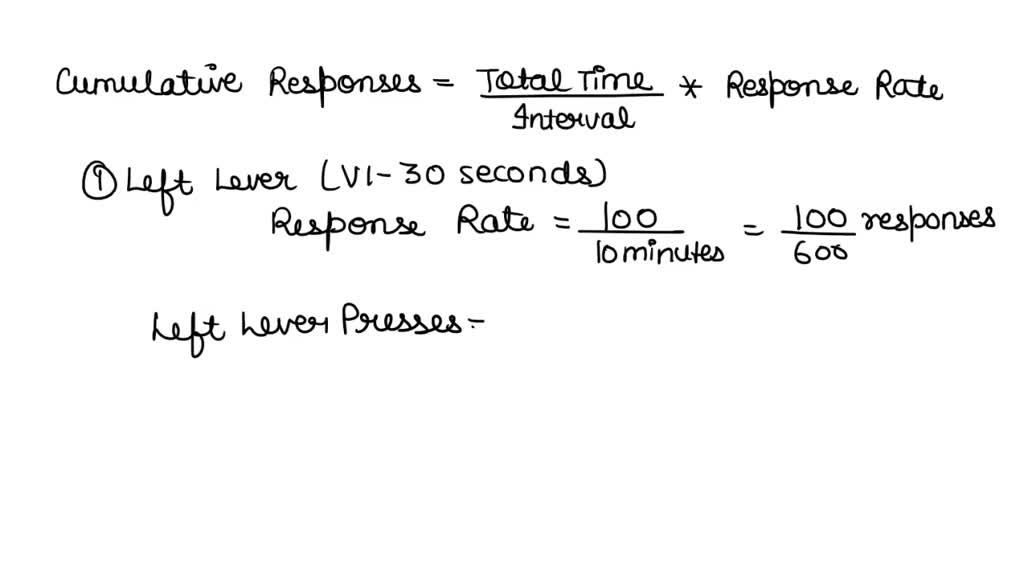 Cumulative Responses = Total Time / Interval * Response Rate
① Left Lever (VI-30 seconds)
Response Rate = 100 / 10 minutes = 100 / 600 responses
Left Lever Presses =